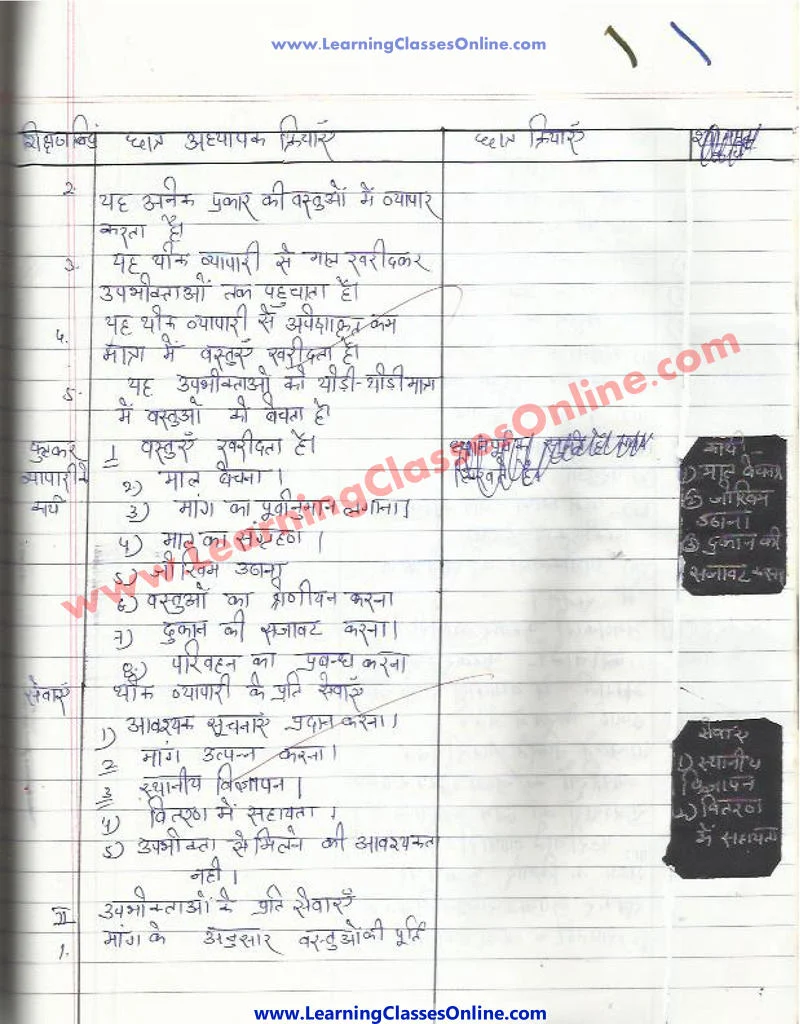 www.LearningClassesOnline.com
शिक्षण बिंदु छात्र अध्यापक क्रियाएँ छात्र क्रियाएँ
2. यह अनेक प्रकार की वस्तुओं में व्यापार
करता है।
3. यह थोक व्यापारी से माल खरीदकर
उपभोक्ताओं तक पहुचाता है।
4. यह थोक व्यापारी से अपेक्षाकृत कम
मात्रा में वस्तुएँ खरीदता है।
5. यह उपभोक्ताओं को थोड़ी-थोड़ी मात्रा
में वस्तुओं को बेचता है
फुटकर व्यापारी के कार्य
1 वस्तुएँ खरीदता है।
2) माल बेचना।
3) मांग का पूर्वानुमान लगाना।
4) माल का संग्रहण।
5) जोखिम उठाना
6) वस्तुओं का श्रेणीयन करना
7) दुकान की सजावट करना।
8) परिवहन का प्रबन्ध करना
कार्य-
1) माल बेचना
2) जोखिम
उठाना।
3) दुकान की
सजावट करना
www.LearningClassesOnline.com
सेवाएँ थोक व्यापारी के प्रति सेवाएँ
1) आवश्यक सूचनाएँ प्रदान करना।
2 मांग उत्पन्न करना।
3 स्थानीय विज्ञापन।
4) वितरण में सहायता।
5) उपभोक्ता से मिलने की आवश्यकता
नही।
सेवाएँ
1) स्थानीय
विज्ञापन
2) वितरण
में सहायता
II उपभोक्ताओं के प्रति सेवाएँ
1. मांग के अनुसार वस्तुओं की पूर्ति
www.LearningClassesOnline.com